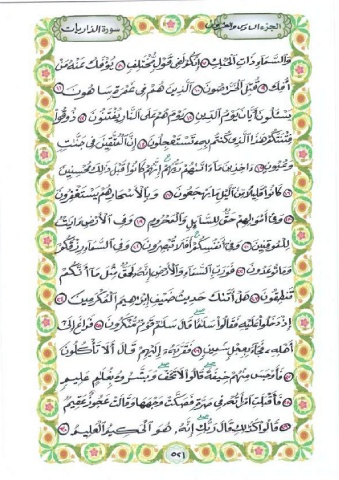 الجزء السادس والعشرون
سورة الذاريات
وَالسَّمَاءِ ذَاتِ الْحُبُكِ ٧ إِنَّكُمْ لَفِي قَوْلٍ مُخْتَلِفٍ ٨ يُؤْفَكُ عَنْهُ مَنْ
أُفِكَ ٩ قُتِلَ الْخَرَّاصُونَ ١٠ الَّذِينَ هُمْ فِي غَمْرَةٍ سَاهُونَ ١١
يَسْـَٔلُونَ أَيَّانَ يَوْمُ الدِّينِ ١٢ يَوْمَ هُمْ عَلَى النَّارِ يُفْتَنُونَ ١٣ ذُوقُوا
فِتْنَتَكُمْ هَٰذَا الَّذِي كُنْتُمْ بِهِ تَسْتَعْجِلُونَ ١٤ إِنَّ الْمُتَّقِينَ فِي جَنَّٰتٍ
وَعُيُونٍ ١٥ ءَاخِذِينَ مَا ءَاتَىٰهُمْ رَبُّهُمْ إِنَّهُمْ كَانُوا قَبْلَ ذَٰلِكَ مُحْسِنِينَ
١٦ كَانُوا قَلِيلًا مِنَ اللَّيْلِ مَا يَهْجَعُونَ ١٧ وَبِالْأَسْحَارِ هُمْ يَسْتَغْفِرُونَ
١٨ وَفِي أَمْوَٰلِهِمْ حَقٌّ لِلسَّائِلِ وَالْمَحْرُومِ ١٩ وَفِي الْأَرْضِ ءَايَٰتٌ
لِلْمُوقِنِينَ ٢٠ وَفِي أَنْفُسِكُمْ أَفَلَا تُبْصِرُونَ ٢١ وَفِي السَّمَاءِ رِزْقُكُمْ
وَمَا تُوعَدُونَ ٢٢ فَوَرَبِّ السَّمَاءِ وَالْأَرْضِ إِنَّهُ لَحَقٌّ مِثْلَ مَا أَنَّكُمْ
تَنْطِقُونَ ٢٣ هَلْ أَتَىٰكَ حَدِيثُ ضَيْفِ إِبْرَٰهِيمَ الْمُكْرَمِينَ ٢٤
إِذْ دَخَلُوا عَلَيْهِ فَقَالُوا سَلَٰمًا قَالَ سَلَٰمٌ قَوْمٌ مُنْكَرُونَ ٢٥ فَرَاغَ إِلَىٰ
أَهْلِهِ فَجَاءَ بِعِجْلٍ سَمِينٍ ٢٦ فَقَرَّبَهُ إِلَيْهِمْ قَالَ أَلَا تَأْكُلُونَ
٢٧ فَأَوْجَسَ مِنْهُمْ خِيفَةً قَالُوا لَا تَخَفْ وَبَشَّرُوهُ بِغُلَٰمٍ عَلِيمٍ
٢٨ فَأَقْبَلَتِ امْرَأَتُهُ فِي صَرَّةٍ فَصَكَّتْ وَجْهَهَا وَقَالَتْ عَجُوزٌ عَقِيمٌ
٢٩ قَالُوا كَذَٰلِكِ قَالَ رَبُّكِ إِنَّهُ هُوَ الْحَكِيمُ الْعَلِيمُ ٣٠
٥٢١